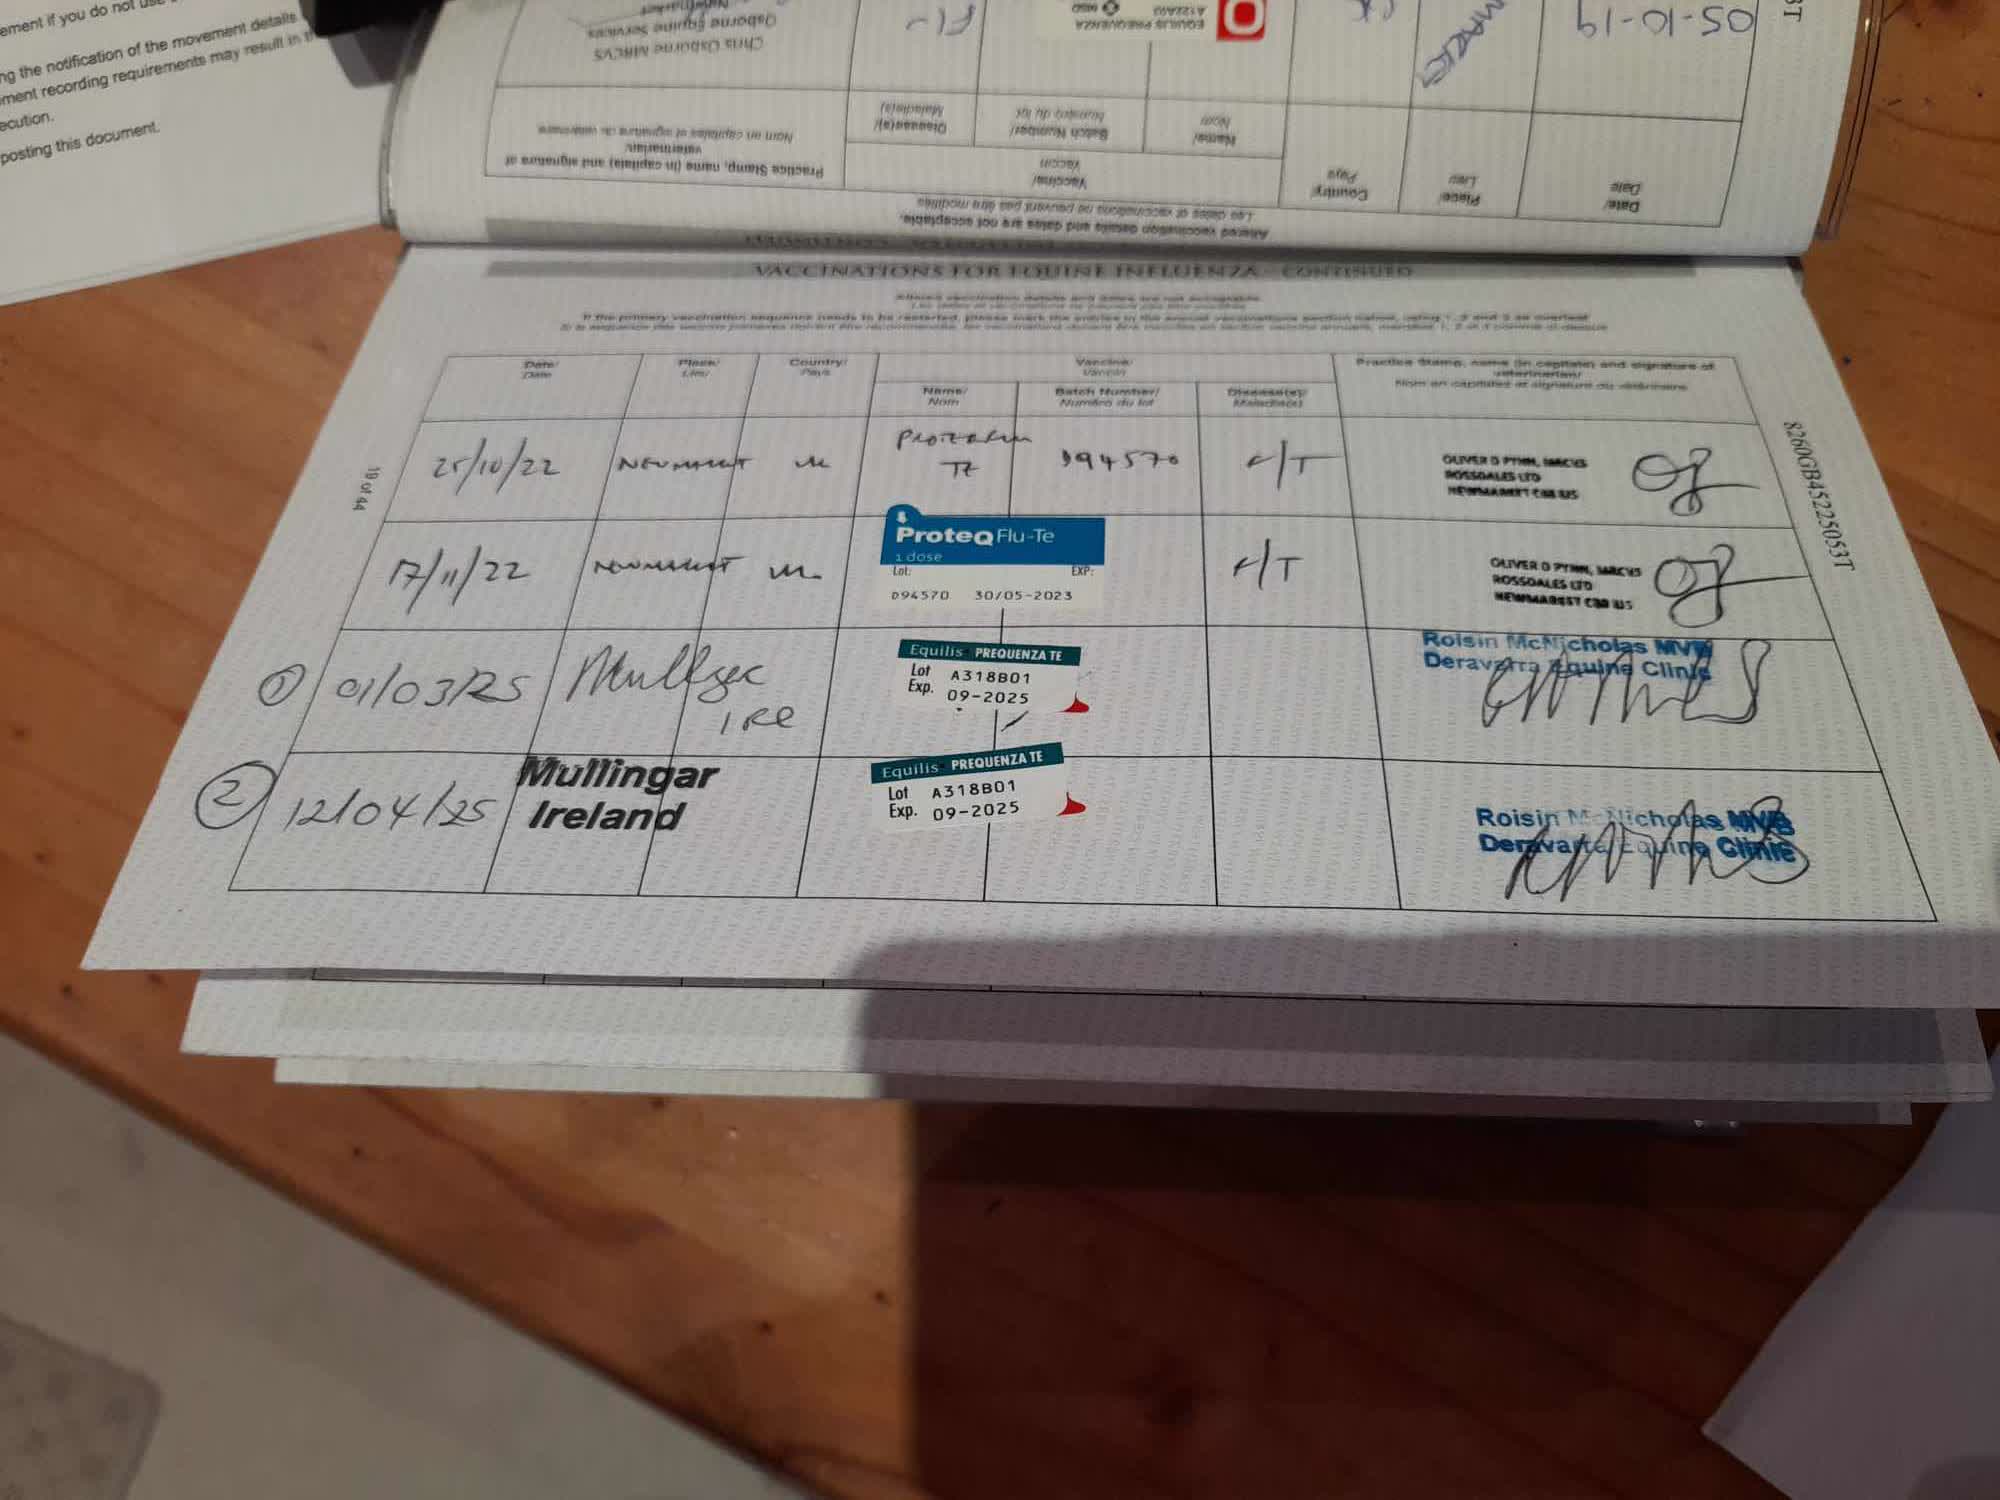 ement if you do not use
ng the notification of the movement details
ment recording requirements may result in
ecution.
posting this document.
05-10-19
FL
EQUILIS PREQUENZA
Chris Osborne MRCVS
Osborne Equine Services
Newmarket
Date/
Date
Place/
Lieu
Country/
Pays
Vaccine/
Vaccin
Name/
Nom
Batch Number/
Numéro du lot
Disease(s)/
Maladie(s)
Practice Stamp, name (in capitals) and signature of
veterinarian/
Nom en capitales et signature du vétérinaire
Altered vaccination details and dates are not acceptable.
Les dates et vaccinations ne peuvent pas être modifiés
VACCINATIONS FOR EQUINE INFLUENZA - CONTINUED
Altered vaccination details and dates are not acceptable
If the primary vaccination sequence needs to be restarted, please mark the entries in the annual vaccinations section below, using 1, 2 and 3 as overleaf
Date/
Date
Place/
Lieu
Country/
Pays
Vaccine/
Vaccin
Name/
Nom
Batch Number/
Numéro du lot
Disease(s)/
Maladie(s)
Practice Stamp, name (in capitals) and signature of
veterinarian/
Nom en capitales et signature du vétérinaire
25/10/22 NEWMARKET UK
TE
D94570
F/T
OLIVER D PYNN, MRCVS
ROSSDALES LTD
NEWMARKET CB8
17/11/22 NEWMARKET UK
ProteqFlu-Te
1 dose
Lot: EXP:
D94570 30/05-2023
F/T
OLIVER D PYNN, MRCVS
ROSSDALES LTD
NEWMARKET CB8
① 01/03/25
IRE
Equilis PREQUENZA TE
Lot A318B01
Exp. 09-2025
Roisin McNicholas MVB
Deravarra Equine Clinic
② 12/04/25
Mullingar
Ireland
Equilis PREQUENZA TE
Lot A318B01
Exp. 09-2025
Roisin McNicholas MVB
Deravarra Equine Clinic
19 of 44
8260GB45225053T